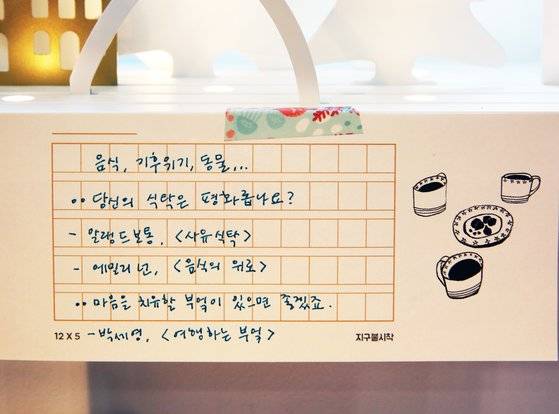 음식, 기후위기, 동물...
•• 당신의 식탁은 평화롭나요?
- 알랭 드 보통, <사유식탁>
- 에밀리 넌, <음식의 위로>
•• 마음을 치유할 부엌이 있으면 좋겠죠.
12 X 5 - 박세영, <여행하는 부엌> 지구불시착